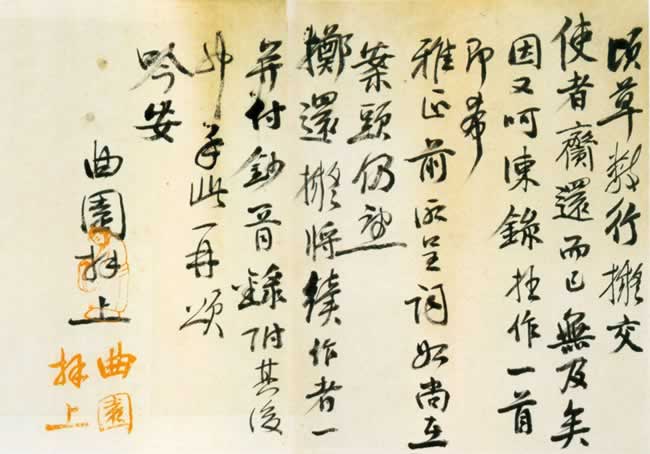 頃草數行擬交
使者齎還而已無及矣
因又呵凍錄拙作一首
即希
雅正前所呈詞如尚在
案頭仍懇
擲還擬將續作者一
并付鈔胥錄附其後
手此再頌
吟安
曲園拜上
曲園
拜上